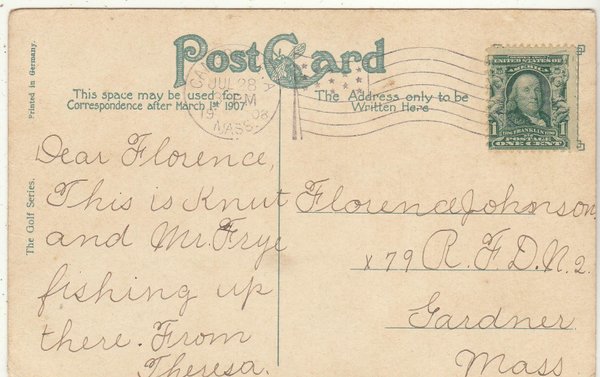 Post Card
This space may be used for
Correspondence after March 1st 1907
The Address only to be
Written Here
Printed in Germany.
The Golf Series.
JUL 28
M
19 08
MASS.
UNITED STATES OF AMERICA
FRANKLIN
1 1
POSTAGE
ONE CENT
Dear Florence,
This is Knut
and Mr. Frye
fishing up
there. From
Theresa.
Florence Johnson
x 79 R.F.D. N. 2.
Gardner
Mass.